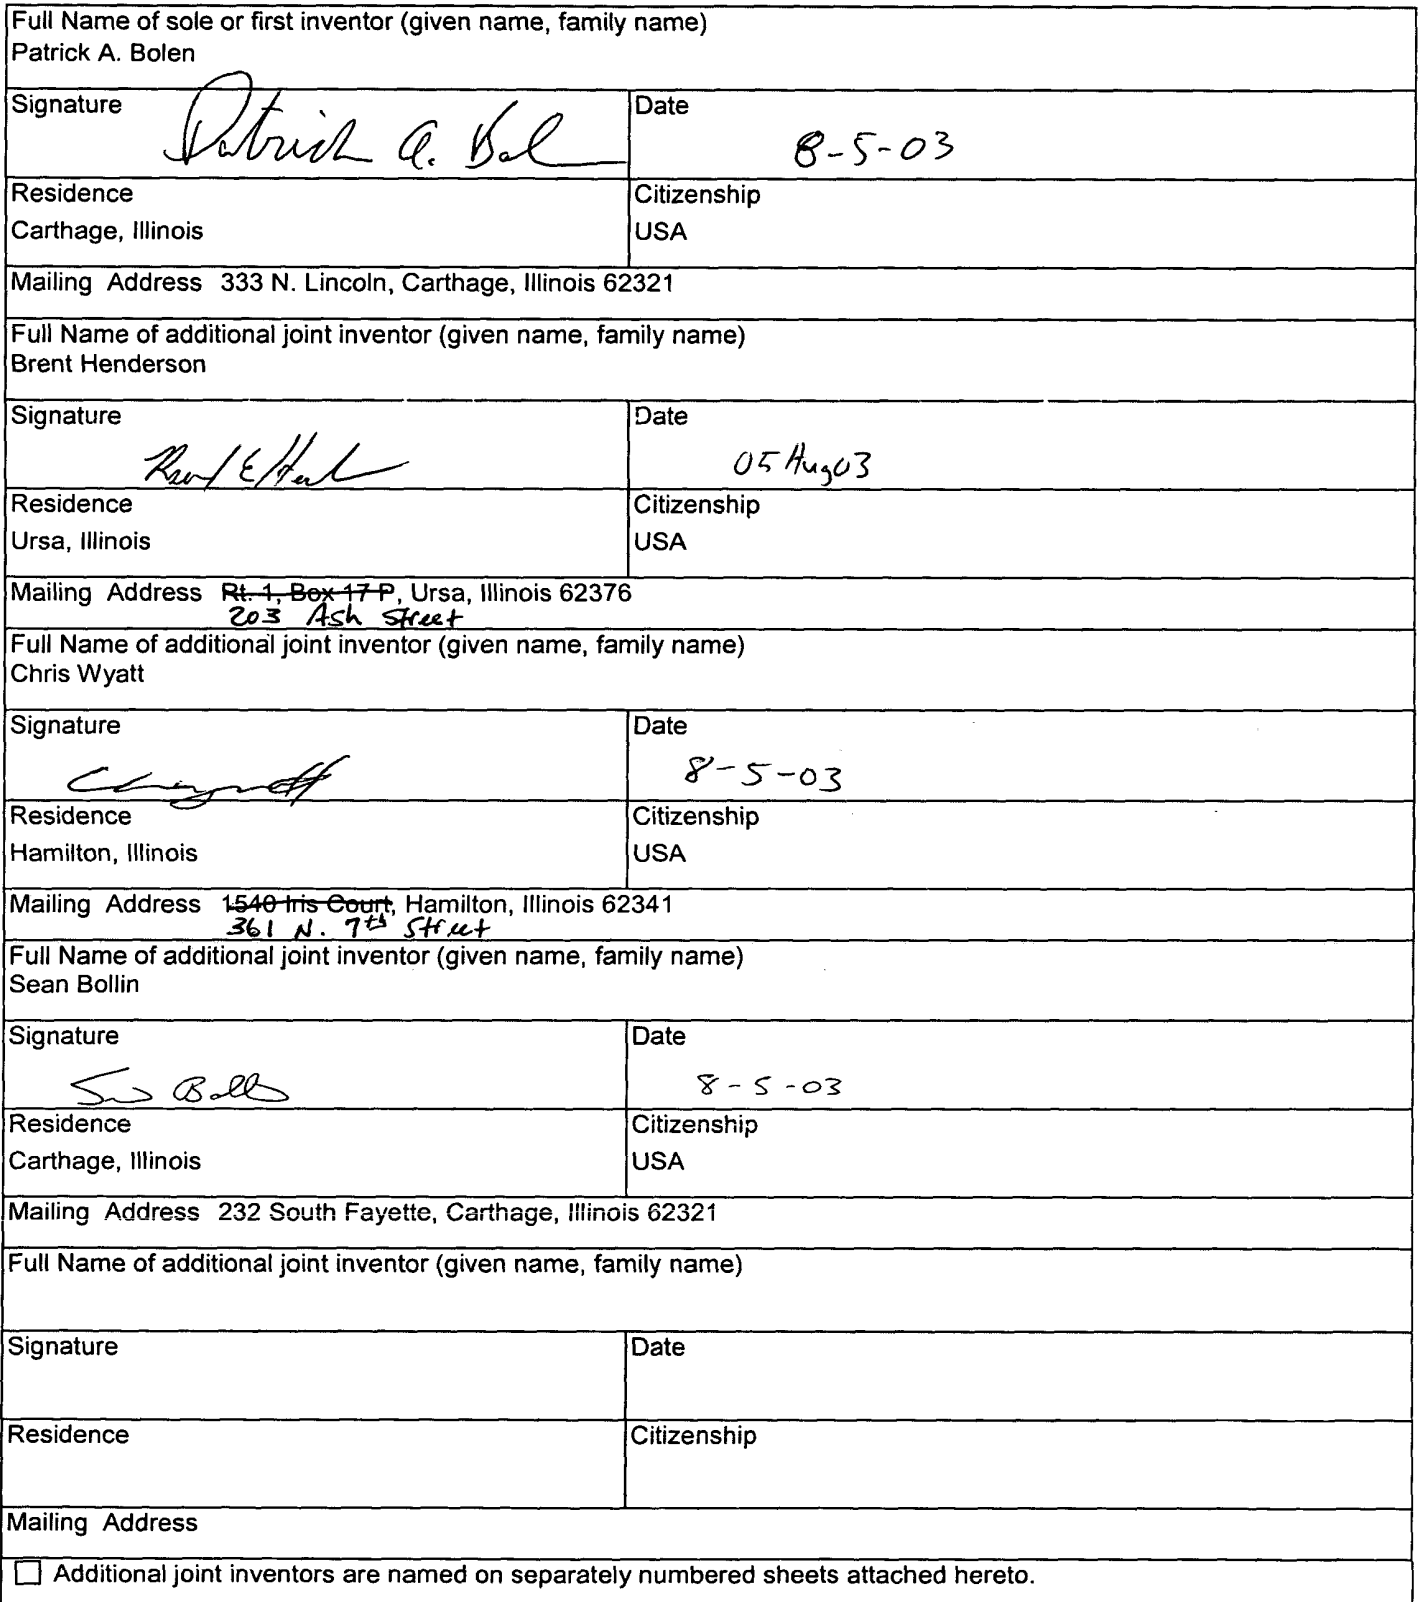 Full Name of sole or first inventor (given name, family name)
Patrick A. Bolen
Signature Patrick A. Bol Date 8-5-03
Residence Citizenship
Carthage, Illinois USA
Mailing Address 333 N. Lincoln, Carthage, Illinois 62321
Full Name of additional joint inventor (given name, family name)
Brent Henderson
Signature Date 05 Aug 03
Residence Citizenship
Ursa, Illinois USA
Mailing Address Rt. 1, Box 17 P, Ursa, Illinois 62376
203 Ash Street
Full Name of additional joint inventor (given name, family name)
Chris Wyatt
Signature Date 8-5-03
Residence Citizenship
Hamilton, Illinois USA
Mailing Address 1540 Iris Court, Hamilton, Illinois 62341
361 N. 7th Street
Full Name of additional joint inventor (given name, family name)
Sean Bollin
Signature Date 8-5-03
Residence Citizenship
Carthage, Illinois USA
Mailing Address 232 South Fayette, Carthage, Illinois 62321
Full Name of additional joint inventor (given name, family name)
Signature Date
Residence Citizenship
Mailing Address
Additional joint inventors are named on separately numbered sheets attached hereto.